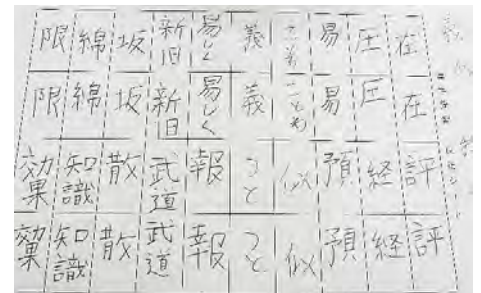 限 綿 坂 新旧 易しく 義 易 圧 在
限 綿 坂 新旧 易しく 義 易 圧 在
効果 知識 散 武道 報 つと 似 預 経 評
効果 知識 散 武道 報 つと 似 預 経 評